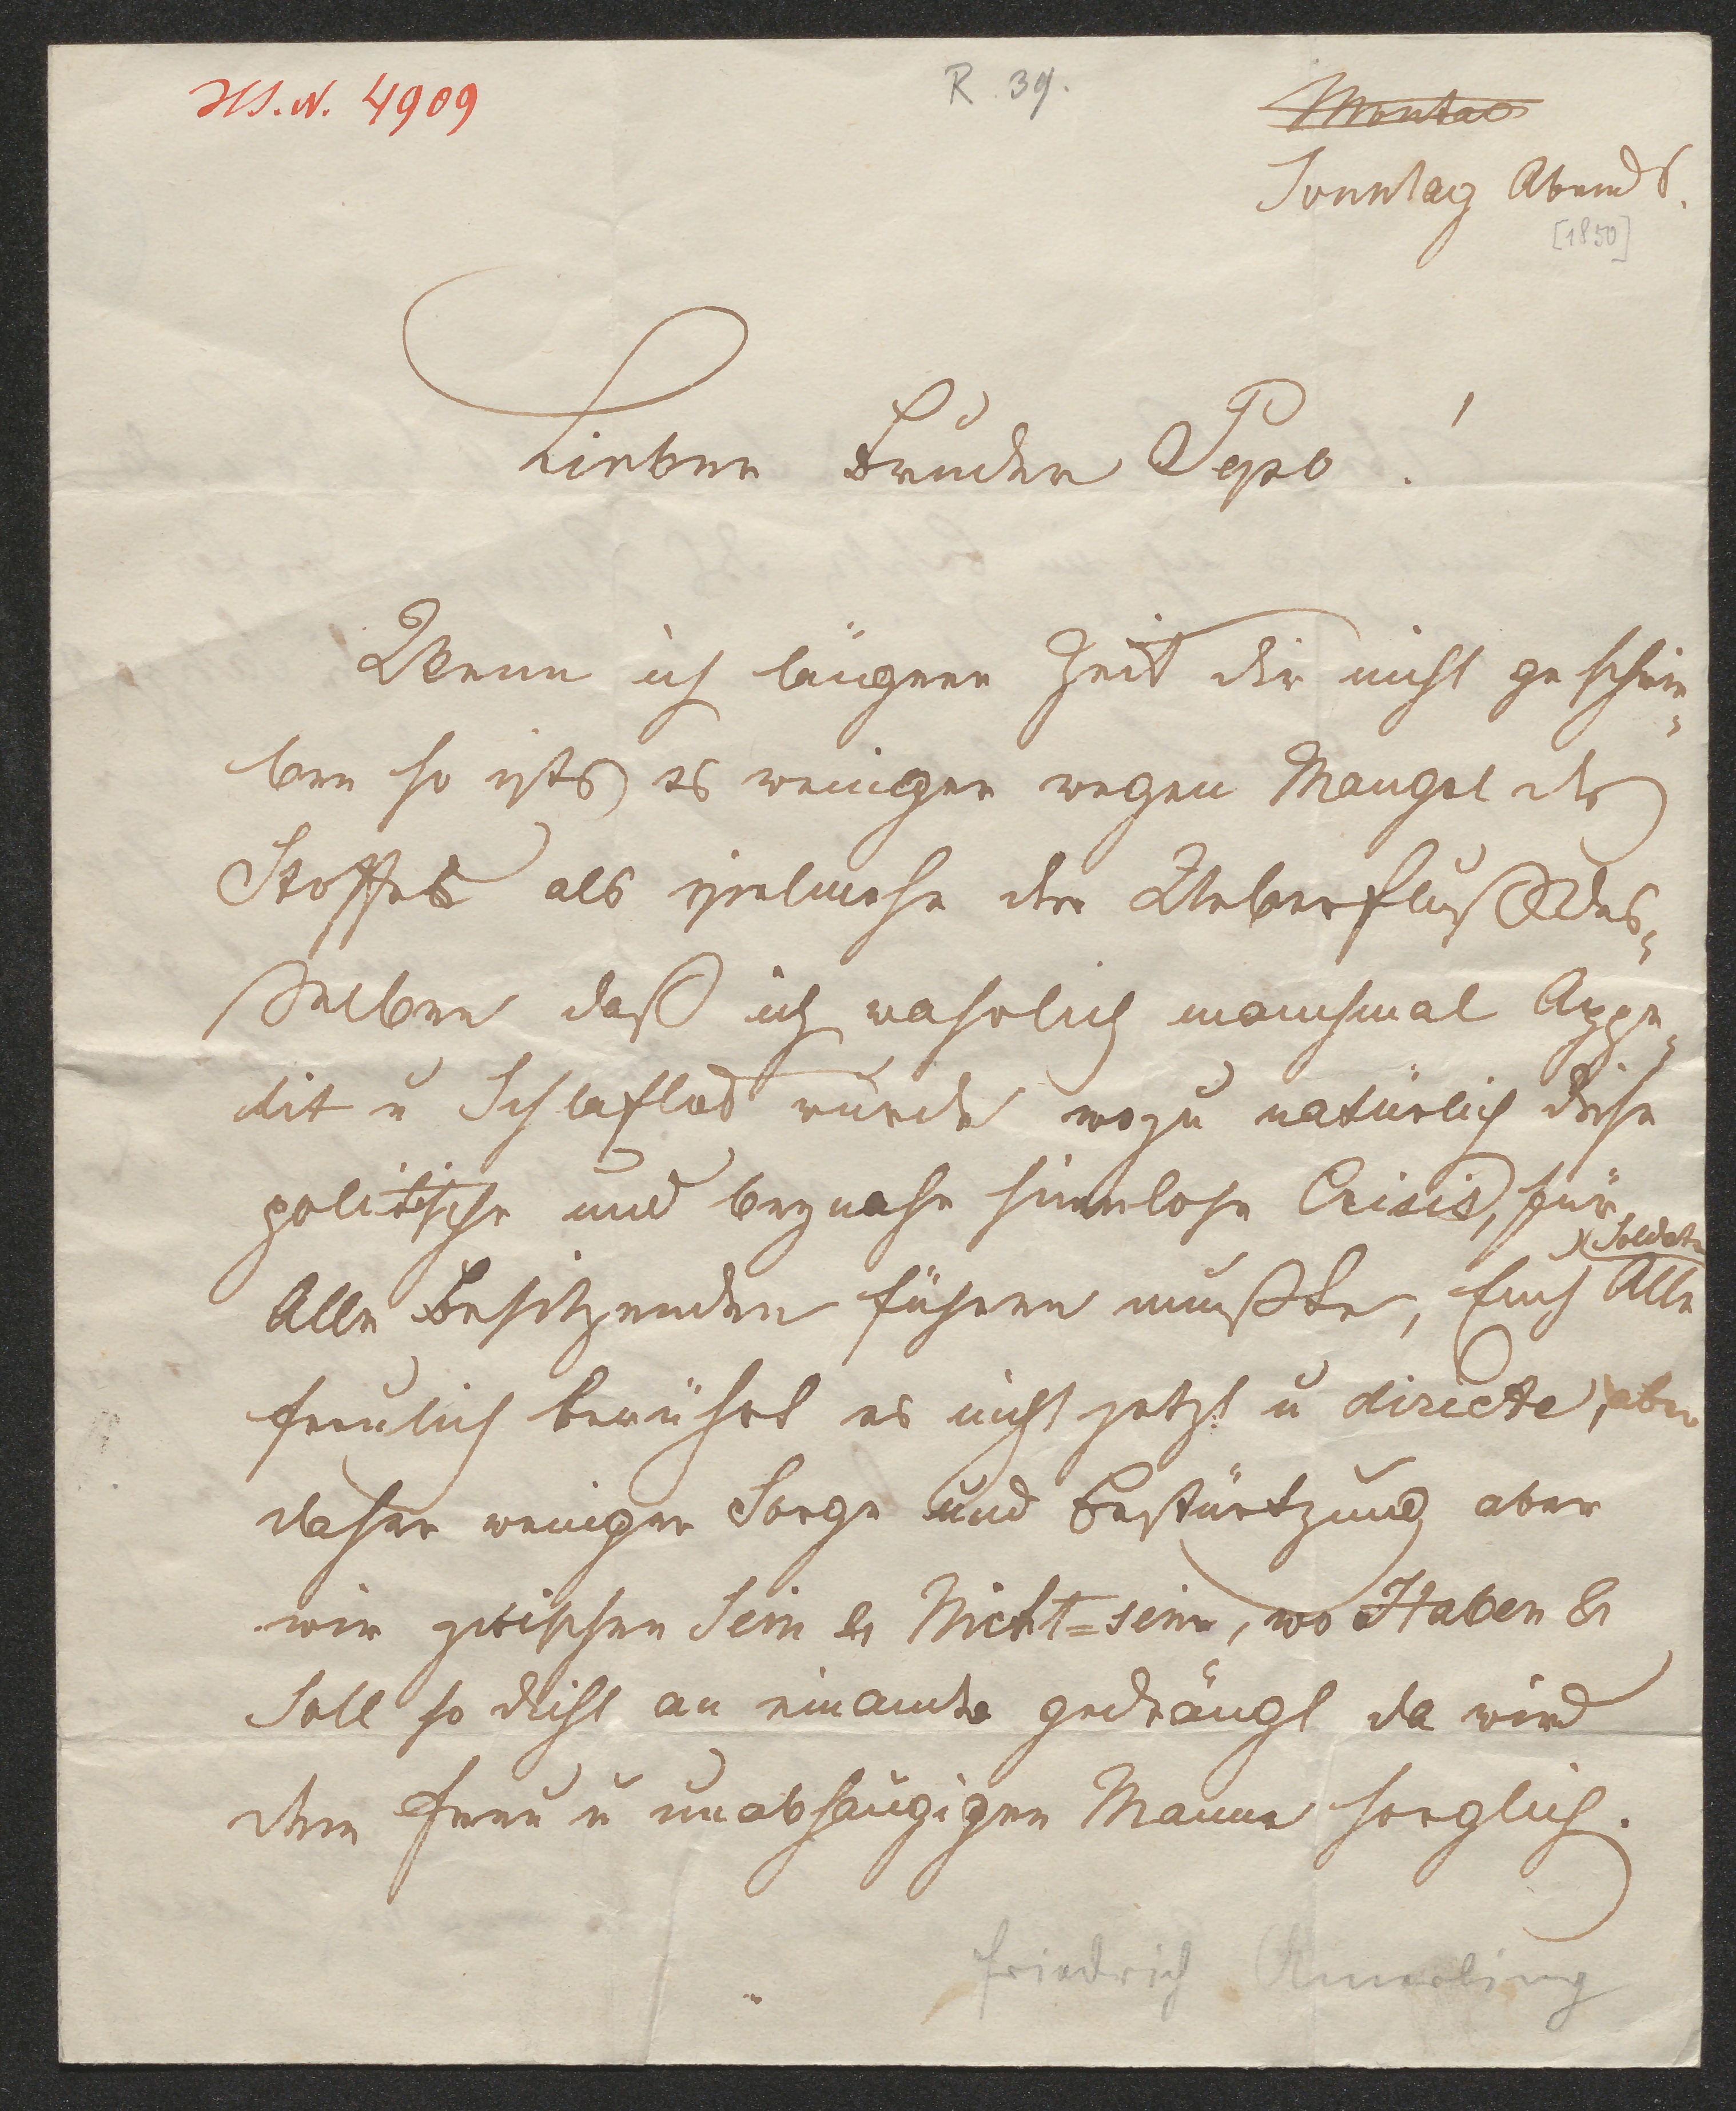 HS. N. 4909
R. 39.
Montag
Sonntag Abends.
[1850]
Lieber Bruder Pepo!
Wenn ich längere Zeit dir nicht geschrie-
ben so ists es weniger wegen Mangel des
Stoffes als vielmehr der Ueberfluß des-
selben daß ich wahrlich manchmal Appe-
tit u Schlaflos wurde wozu natürlich diese
politische und beynahe sinnlose Crisis, für
Alle Besitzenden führen mußte, Euch Soldaten Alle
freulich berührt es nicht jetzt u directe, aber
daher weniger Sorge und Bestürtzung aber
wir zwischen Sein & Nicht-sein, wo Haben &
Soll so dicht an einander gedrängt da wird
dem freu u unabhängigen Manne sorglich.
Friedrich Amerling